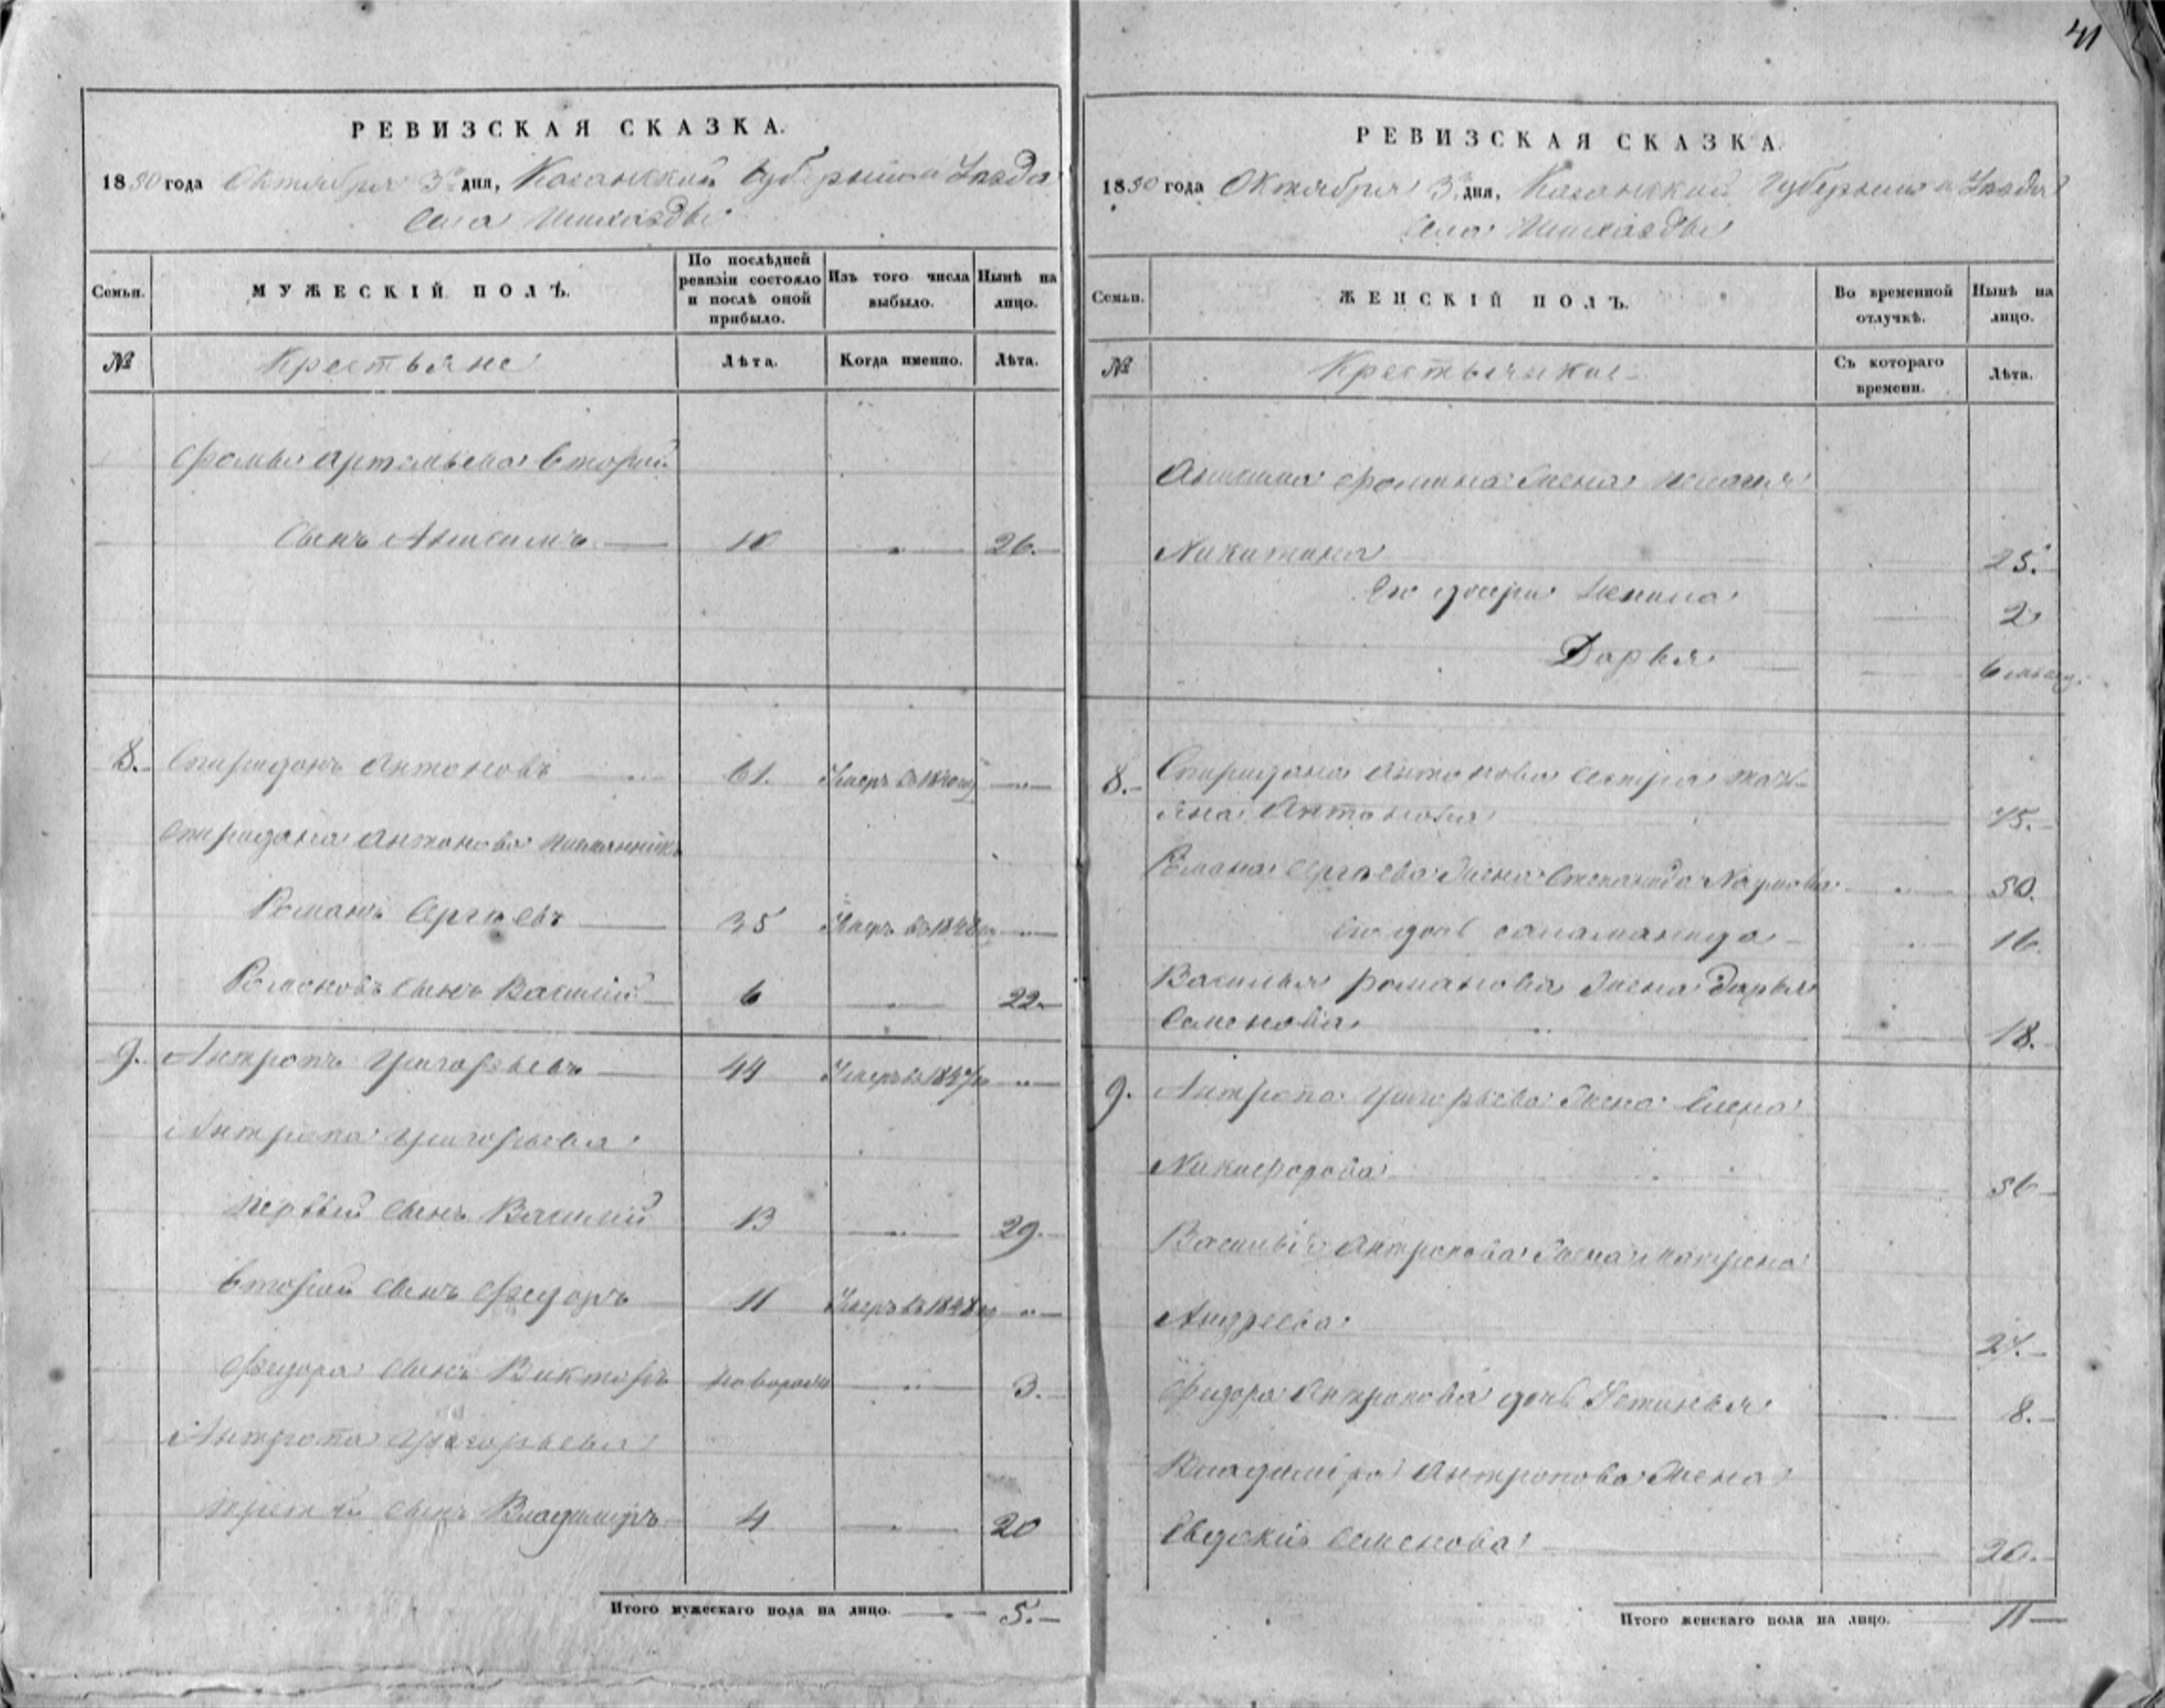 41
РЕВИЗСКАЯ СКАЗКА.
1850 года Октября 3го дня, Казанской Губернии и Уезда
Села
Семьи.
МУЖЕСКІЙ ПОЛЪ.
По послѣдней ревизіи состояло и послѣ оной прибыло.
Изъ того числа выбыло.
Нынѣ на лицо.
№
Крестьяне
Лѣта.
Когда именно.
Лѣта.
Фомы Артемьева второй
сынъ Анисимъ 10 26.
8. Спиридонъ Антоновъ 61. Умеръ въ 1840
Спиридона Антонова племянникъ
Романъ Сергѣевъ 35 Умеръ въ 1848
Романовъ сынъ Василий 6 22
9. Антропъ Григорьевъ 44 Умеръ въ 1847
Антропа Григорьева
первый сынъ Василий 13 29.
второй сынъ Федоръ 11 Умеръ въ 1848
Федора сынъ Викторъ новорож 3.
Антропа Григорьева
третий сынъ Владимиръ 4 20
Итого мужескаго пола на лицо. 5.
РЕВИЗСКАЯ СКАЗКА
1850 года Октября 3го дня, Казанской Губернии и Уезда
Села
Семьи.
ЖЕНСКІЙ ПОЛЪ.
Во временной отлучкѣ.
Нынѣ на лицо.
№
Крестьянки
Съ котораго времени.
Лѣта.
Анисима Фомина жена Пелагия
Никитина 25.
Его дочери 2
Дарья 6 месяц.
8. Спиридона Антонова сестра Тать-
яна Антонова 75.
Романа Сергѣева жена Степанида Карпова 50.
Его дочь Саламанида 16.
Василья Романова жена Дарья
Семенова 18.
9. Антропа Григорьева жена Елена
Никифорова 56
Василья Антропова жена Матрена
Андреева 27.
Федора Антропова дочь Устинья 8.
Владимира Антропова жена
Евдокия Семенова 20.
Итого женскаго пола на лицо. 11